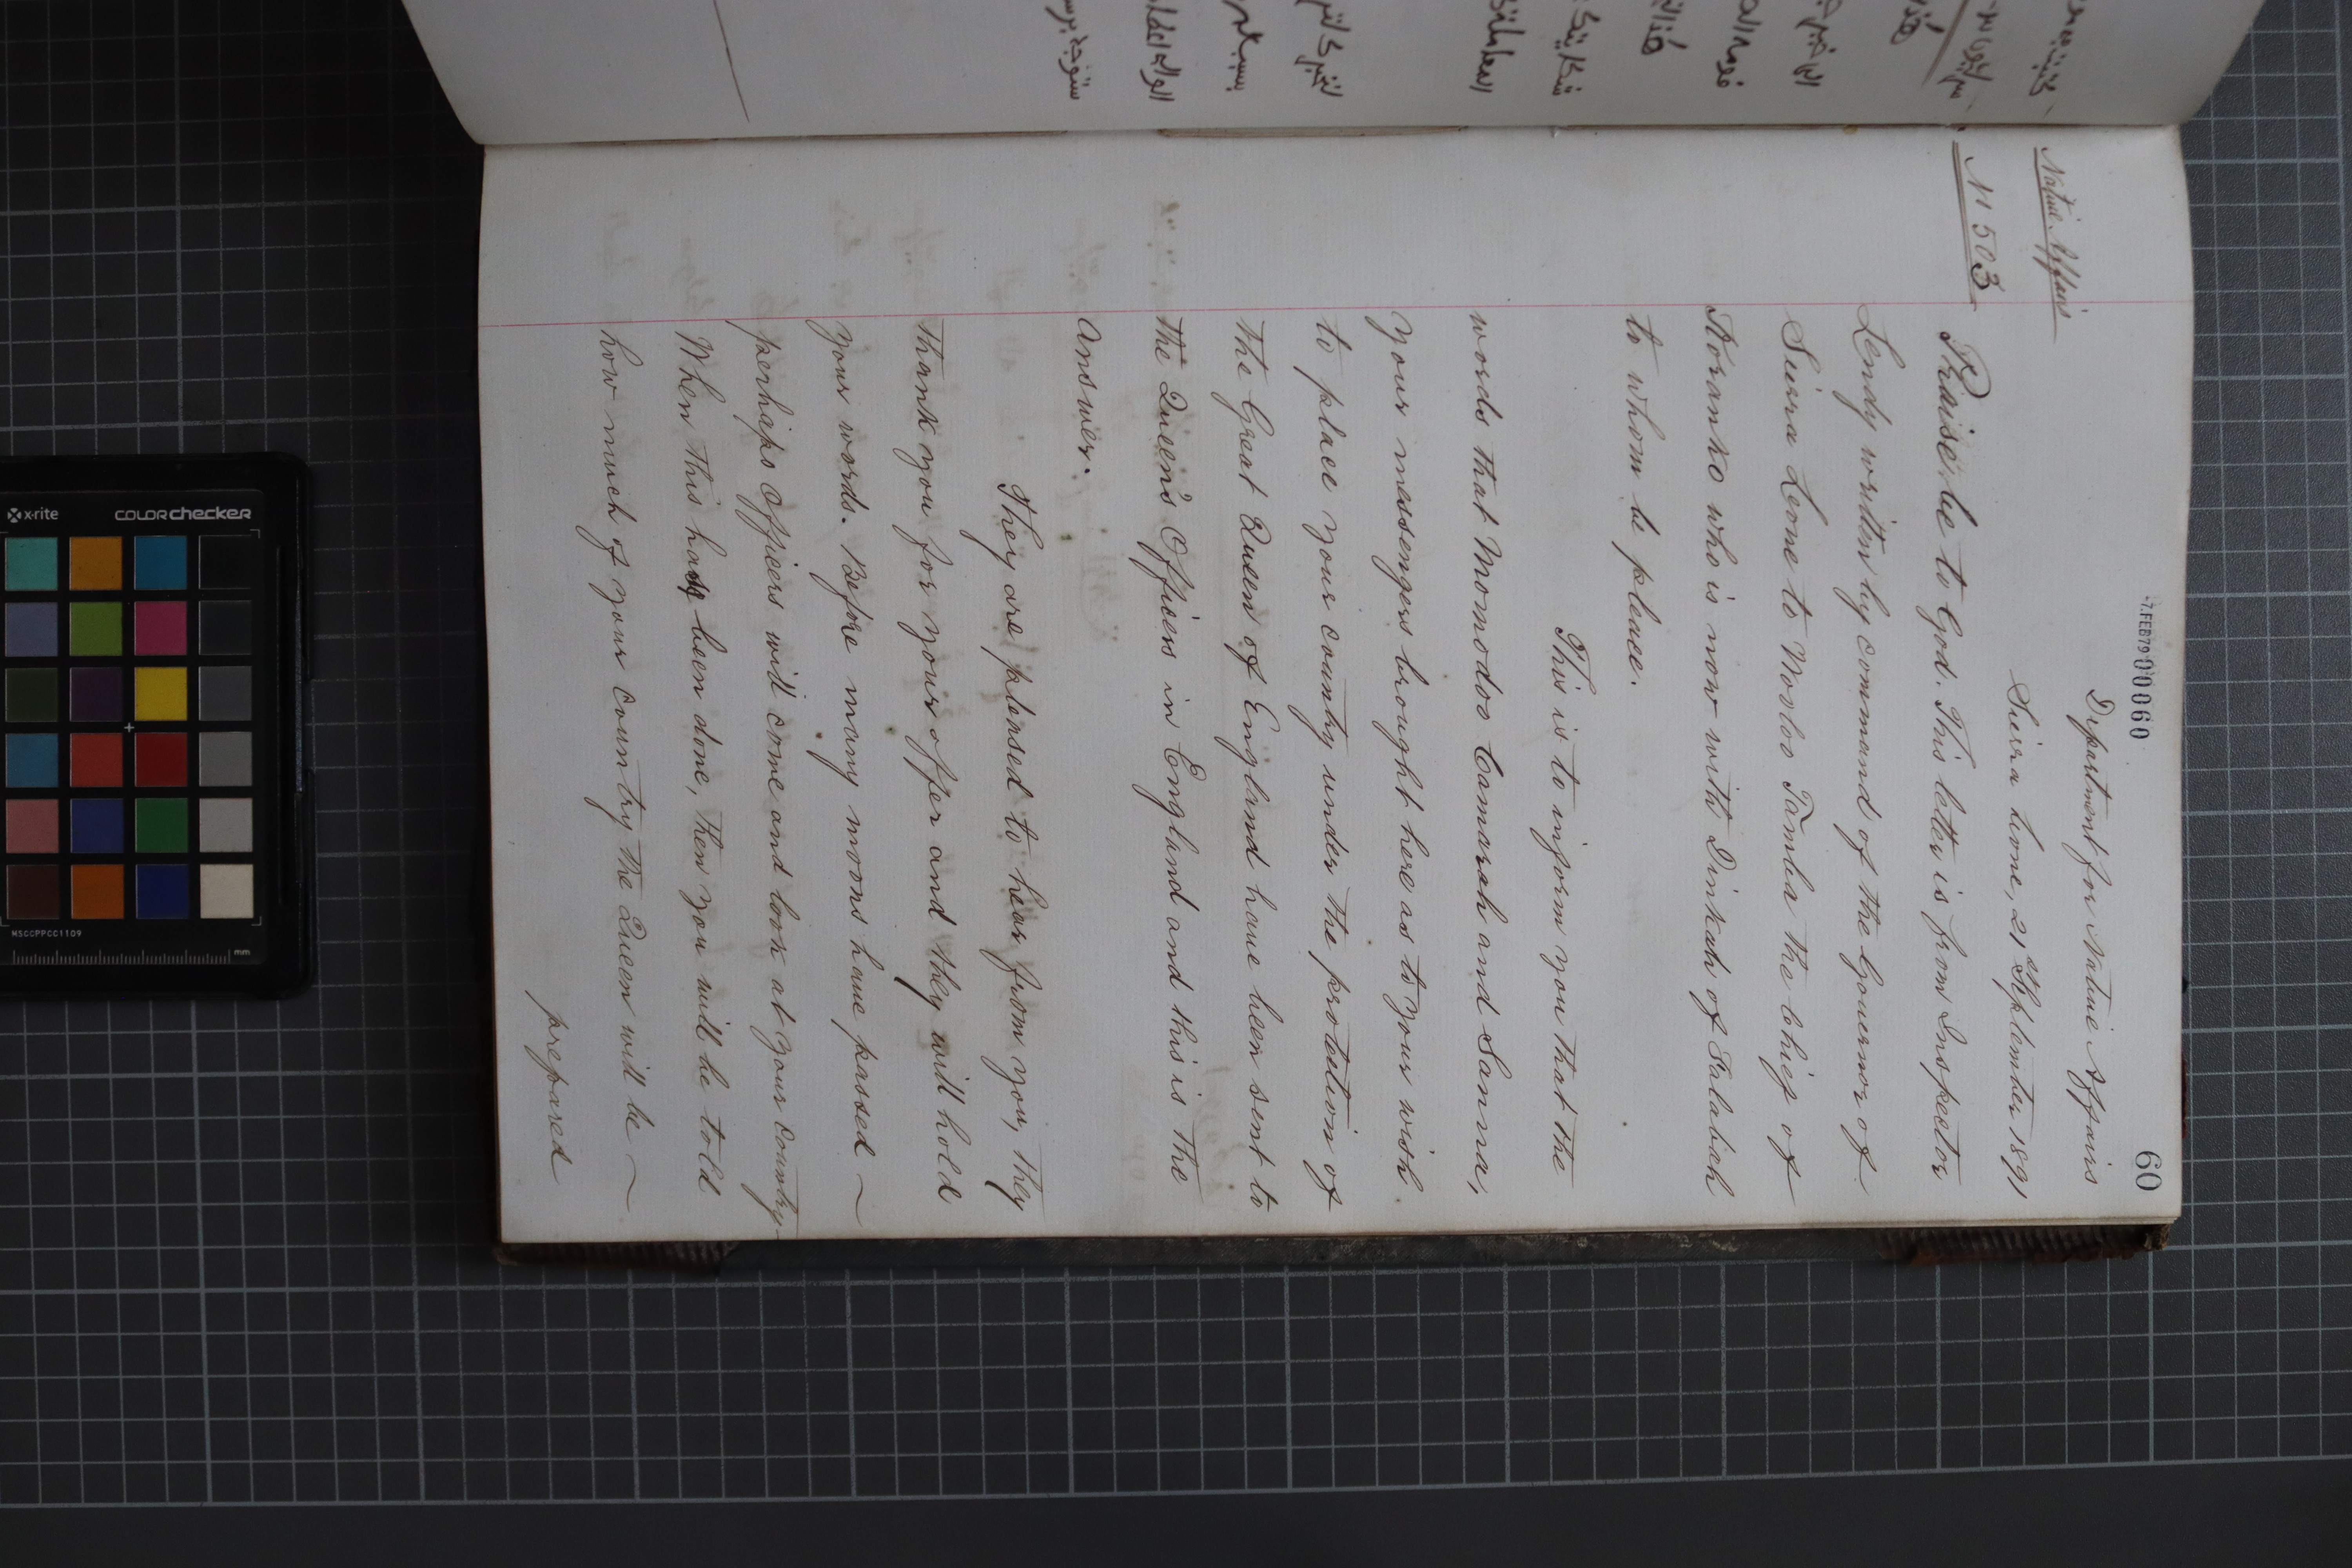 -7.FEB79 00060
60
Department for Native Affairs
Sierra Leone, 21st September 1891
Native Affairs
N 503
Praise be to God. This letter is from Inspector
Lendy written by command of the Governor of
Sierra Leone to Mooloo Tamba the Chief of
Koranko who is now with Dinkah of Falabah
to whom be peace.
This is to inform you that the
words that Momodoo Camarah and Sanna,
your messengers brought here as to your wish
to place your country under the protection of
the Great Queen of England have been sent to
the Queen's Officers in England and this is the
answer.
They are pleased to hear from you, they
thank you for your offer and they will hold
your words. Before many moons have passed ~
perhaps Officers will come and look at your country
When this has been done, then you will be told
how much of your country the Queen will be ~
prepared
x-rite COLORchecker
MSCCPPCC1109
mm